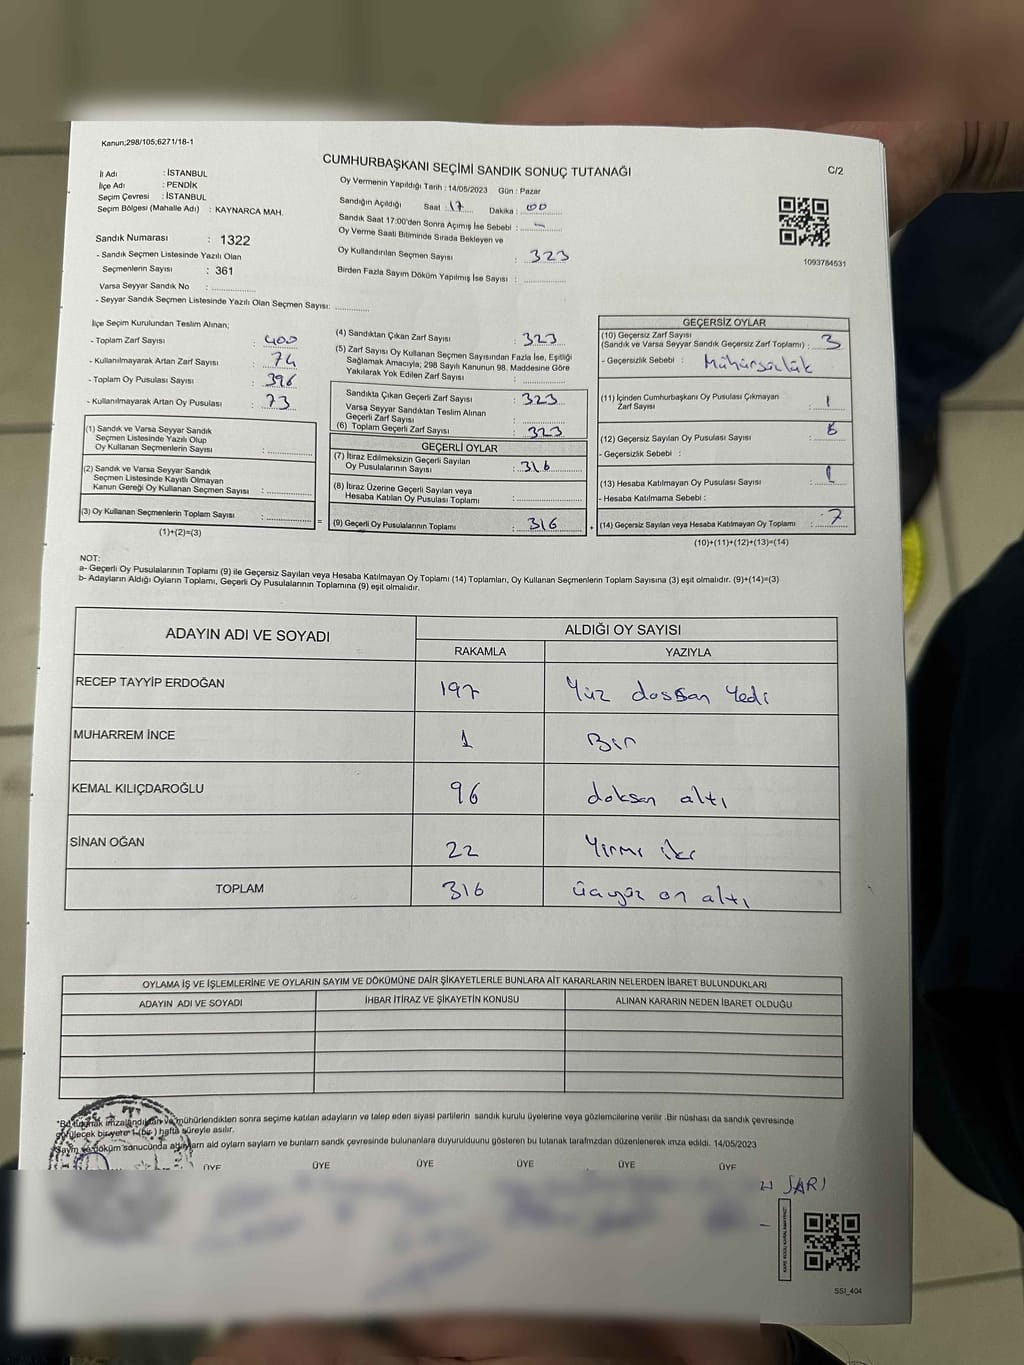 Kanun;298/105;6271/18-1
CUMHURBAŞKANI SEÇİMİ SANDIK SONUÇ TUTANAĞI
C/2
İl Adı : İSTANBUL
İlçe Adı : PENDİK
Seçim Çevresi : İSTANBUL
Seçim Bölgesi (Mahalle Adı) : KAYNARCA MAH.
Sandık Numarası : 1322
- Sandık Seçmen Listesinde Yazılı Olan
Seçmenlerin Sayısı : 361
Varsa Seyyar Sandık No :
- Seyyar Sandık Seçmen Listesinde Yazılı Olan Seçmen Sayısı:
Oy Vermenin Yapıldığı Tarih : 14/05/2023 Gün : Pazar
Sandığın Açıldığı Saat : 17 Dakika : 00
Sandık Saat 17:00'den Sonra Açımış İse Sebebi : -
Oy Verme Saati Bitiminde Sırada Bekleyen ve
Oy Kullandırılan Seçmen Sayısı : 323
Birden Fazla Sayım Döküm Yapılmış İse Sayısı :
1093784531
İlçe Seçim Kurulundan Teslim Alınan;
- Toplam Zarf Sayısı : 400
- Kullanılmayarak Artan Zarf Sayısı : 74
- Toplam Oy Pusulası Sayısı : 396
- Kullanılmayarak Artan Oy Pusulası : 73
(1) Sandık ve Varsa Seyyar Sandık
Seçmen Listesinde Yazılı Olup
Oy Kullanan Seçmenlerin Sayısı :
(2) Sandık ve Varsa Seyyar Sandık
Seçmen Listesinde Kayıtlı Olmayan
Kanun Gereği Oy Kullanan Seçmen Sayısı :
(3) Oy Kullanan Seçmenlerin Toplam Sayısı : =
(1)+(2)=(3)
(4) Sandıktan Çıkan Zarf Sayısı : 323
(5) Zarf Sayısı Oy Kullanan Seçmen Sayısından Fazla İse, Eşitliği
Sağlamak Amacıyla; 298 Sayılı Kanunun 98. Maddesine Göre
Yakılarak Yok Edilen Zarf Sayısı :
Sandıkta Çıkan Geçerli Zarf Sayısı : 323
Varsa Seyyar Sandıktan Teslim Alınan
Geçerli Zarf Sayısı :
(6) Toplam Geçerli Zarf Sayısı : 323
GEÇERLİ OYLAR
(7) İtiraz Edilmeksizin Geçerli Sayılan
Oy Pusulalarının Sayısı : 316
(8) İtiraz Üzerine Geçerli Sayılan veya
Hesaba Katılan Oy Pusulası Toplamı :
(9) Geçerli Oy Pusulalarının Toplamı : 316 +
GEÇERSİZ OYLAR
(10) Geçersiz Zarf Sayısı
(Sandık ve Varsa Seyyar Sandık Geçersiz Zarf Toplamı) : 3
- Geçersizlik Sebebi : Mühürsüzlük
(11) İçinden Cumhurbaşkanı Oy Pusulası Çıkmayan
Zarf Sayısı : 1
(12) Geçersiz Sayılan Oy Pusulası Sayısı :
- Geçersizlik Sebebi :
(13) Hesaba Katılmayan Oy Pusulası Sayısı : 1
- Hesaba Katılmama Sebebi :
(14) Geçersiz Sayılan veya Hesaba Katılmayan Oy Toplamı : 7
(10)+(11)+(12)+(13)=(14)
NOT:
a- Geçerli Oy Pusulalarının Toplamı (9) ile Geçersiz Sayılan veya Hesaba Katılmayan Oy Toplamı (14) Toplamları, Oy Kullanan Seçmenlerin Toplam Sayısına (3) eşit olmalıdır. (9)+(14)=(3)
b- Adayların Aldığı Oyların Toplamı, Geçerli Oy Pusulalarının Toplamına (9) eşit olmalıdır.
ADAYIN ADI VE SOYADI
ALDIĞI OY SAYISI
RAKAMLA YAZIYLA
RECEP TAYYİP ERDOĞAN 197 Yüz doksan Yedi
MUHARREM İNCE 1 Bir
KEMAL KILIÇDAROĞLU 96 doksan altı
SİNAN OĞAN 22 Yirmi iki
TOPLAM 316 üçyüz on altı
OYLAMA İŞ VE İŞLEMLERİNE VE OYLARIN SAYIM VE DÖKÜMÜNE DAİR ŞİKAYETLERLE BUNLARA AİT KARARLARIN NELERDEN İBARET BULUNDUKLARI
ADAYIN ADI VE SOYADI İHBAR İTİRAZ VE ŞİKAYETİN KONUSU ALINAN KARARIN NEDEN İBARET OLDUĞU
*Bu tutanak imzalandıktan ve mühürlendikten sonra seçime katılan adayların ve talep eden siyasi partilerin sandık kurulu üyelerine veya gözlemcilerine verilir .Bir nüshası da sandık çevresinde
görülecek bir yere 1 (bir ) hafta süreyle asılır.
Sayım ve döküm sonucunda adayların ald oylarn saylarn ve bunlarn sandk çevresinde bulunanlara duyurulduunu gösteren bu tutanak tarafmzdan düzenlenerek imza edildi. 14/05/2023
ÜYE ÜYE ÜYE ÜYE ÜYE ÜYE
SARI
SSI_404